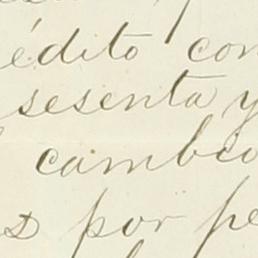 édito con
sesenta y
cambio
s por pe